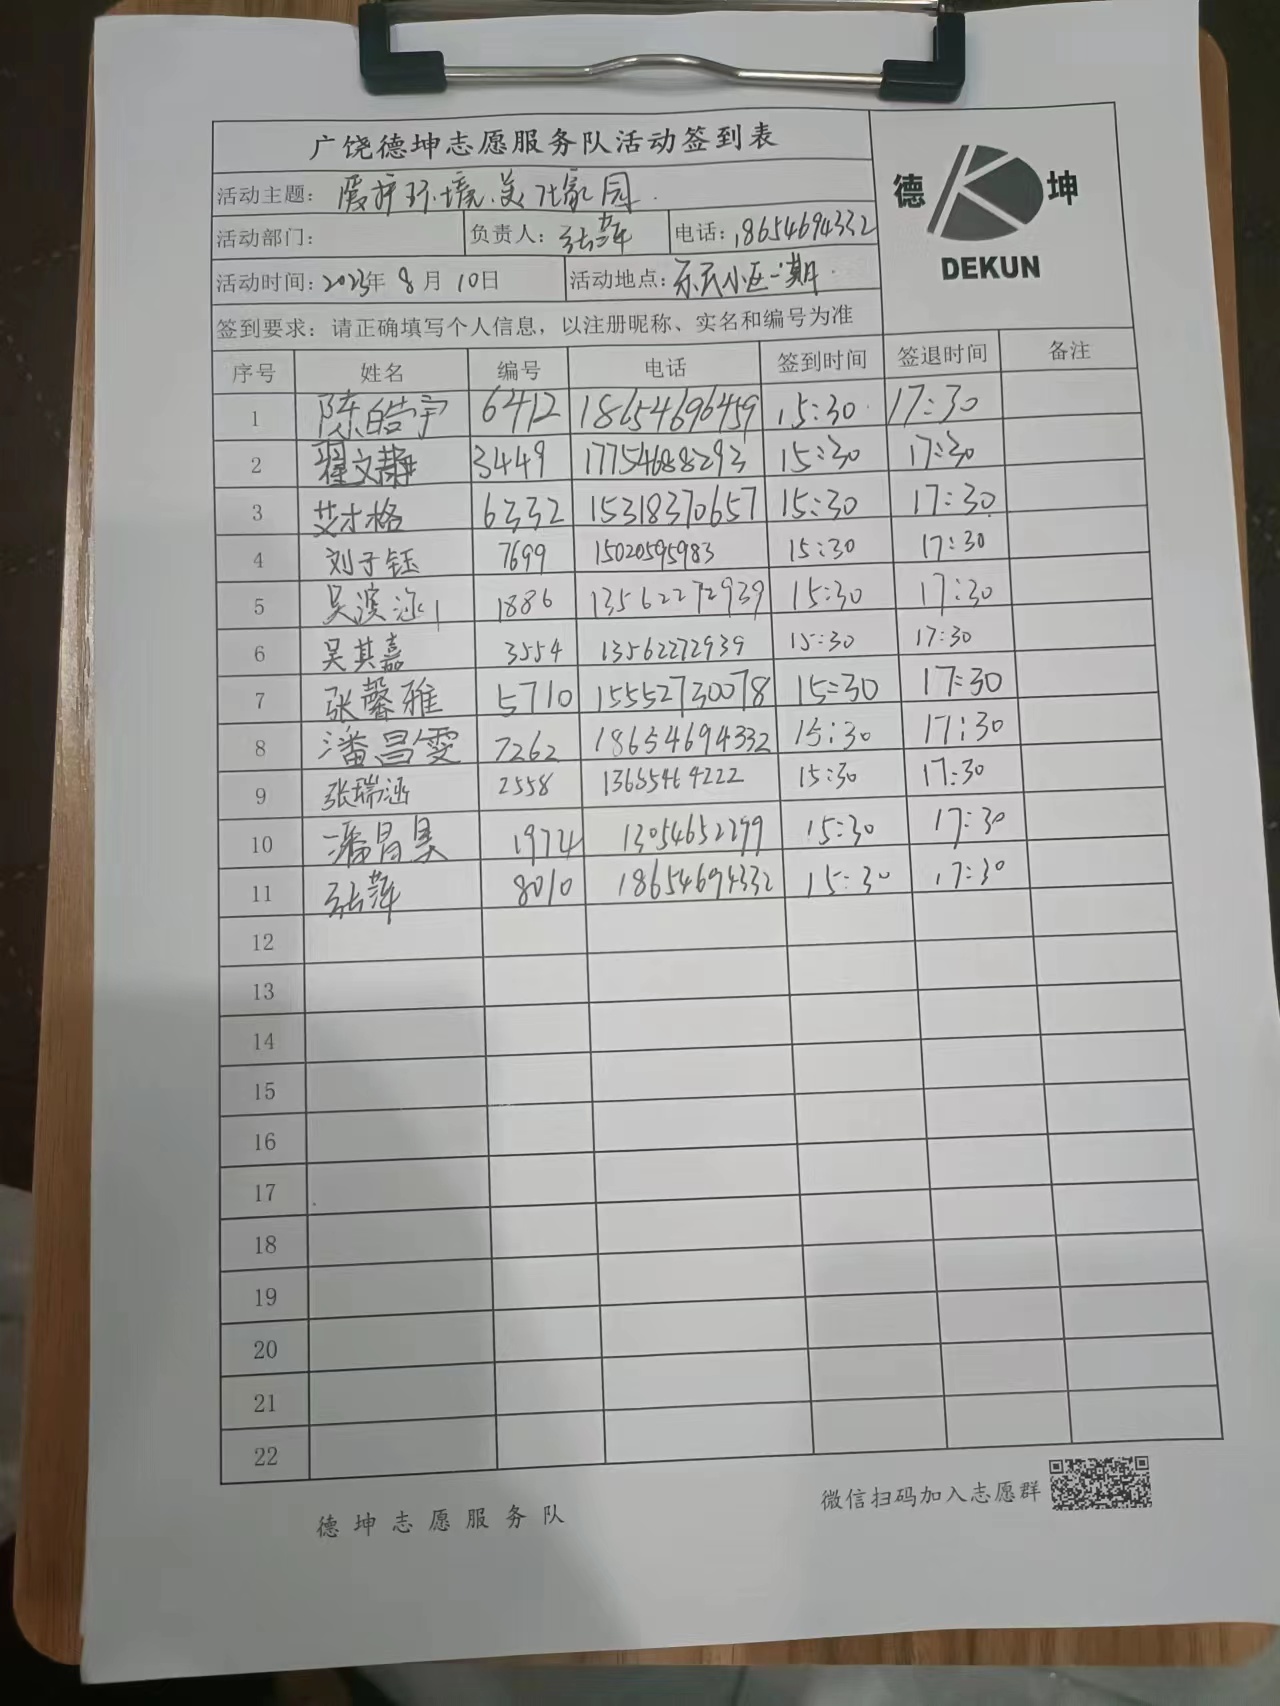 广饶德坤志愿服务队活动签到表
德 坤
DEKUN
活动主题：爱护环境.美化家园.
活动部门： 负责人：张萍 电话：18654694332
活动时间：2023年 8月 10日 活动地点：乐天小区一期
签到要求：请正确填写个人信息，以注册昵称、实名和编号为准
序号 姓名 编号 电话 签到时间 签退时间 备注
1 陈皓宇 6412 18654696459 15:30 17:30
2 翟文静 3449 17754688293 15:30 17:30
3 艾才格 6332 15318370657 15:30 17:30
4 刘子钰 7699 15020595983 15:30 17:30
5 吴滨涵 1886 13562272939 15:30 17:30
6 吴其嘉 3554 13562272939 15:30 17:30
7 张馨雅 5710 15552730078 15:30 17:30
8 潘昌雯 7262 18654694332 15:30 17:30
9 张瑞涵 2558 13655464222 15:30 17:30
10 潘昌昊 1974 13054652299 15:30 17:30
11 张萍 8010 18654694332 15:30 17:30
12
13
14
15
16
17
18
19
20
21
22
德坤志愿服务队
微信扫码加入志愿群